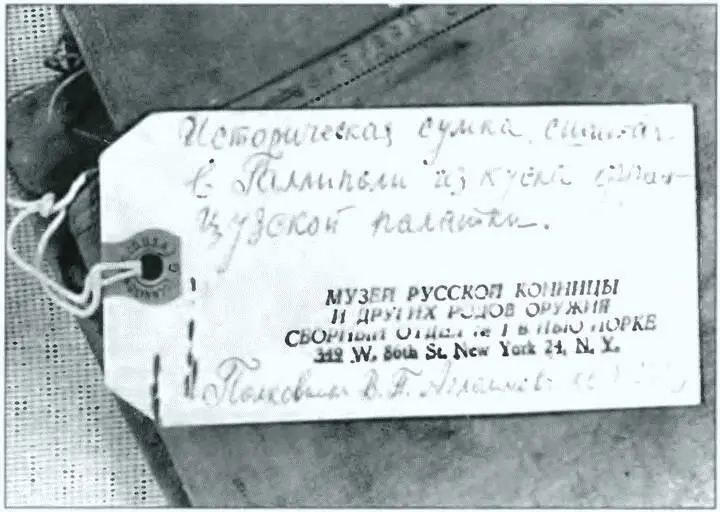 Историческая сумка, сшитая
в Галлиполи из куска фран-
цузской палатки.
МУЗЕЙ РУССКОЙ КОННИЦЫ
И ДРУГИХ РОДОВ ОРУЖИЯ
СБОРНЫЙ ОТДЕЛ № 1 В НЬЮ ЙОРКЕ
349 W. 86th St. New York 24, N. Y.
Полковник В. П.